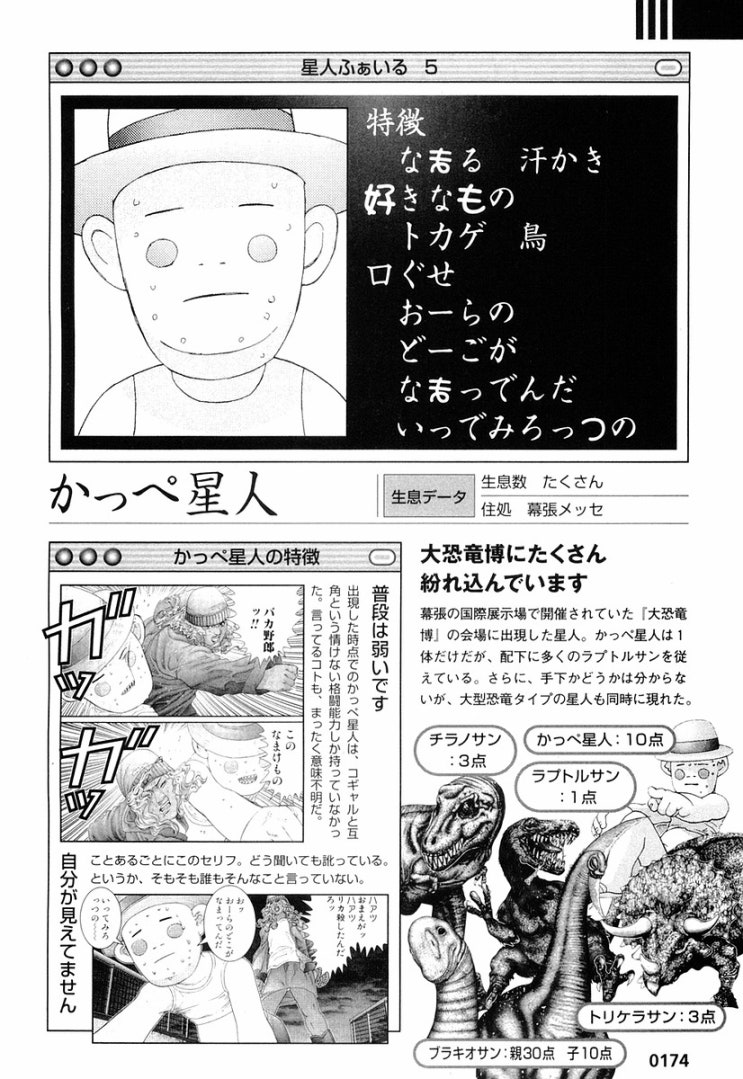 星人ふぁいる 5
特徴
なまる 汗かき
好きなもの
トカゲ 鳥
口ぐせ
おーらの
どーごが
なまっでんだ
いっでみろっつの
かっぺ星人
生息データ
生息数 たくさん
住処 幕張メッセ
かっぺ星人の特徴
普段は弱いです
出現した時点でのかっぺ星人は、コギャルと互
角という情けない格闘能力しか持っていなかっ
た。言ってるコトも、まったく意味不明だ。
ガッ
バカ野郎
ッ!!
ガッ
この
なまけもの
自分が見えてません
ことあるごとにこのセリフ。どう聞いても訛っている。
というか、そもそも誰もそんなこと言っていない。
ハアッ
おまえがッ
ハアッ
リカ殺したんだ
ろッ
おッ
おーらのどこが
なまってんだ
いってみろ
っつの〜〜
大恐竜博にたくさん
紛れ込んでいます
幕張の国際展示場で開催されていた『大恐竜
博』の会場に出現した星人。かっぺ星人は1
体だけだが、配下に多くのラプトルサンを従
えている。さらに、手下かどうかは分からな
いが、大型恐竜タイプの星人も同時に現れた。
チラノサン
:3点
かっぺ星人:10点
ラプトルサン
:1点
トリケラサン:3点
ブラキオサン:親30点 子10点
0174